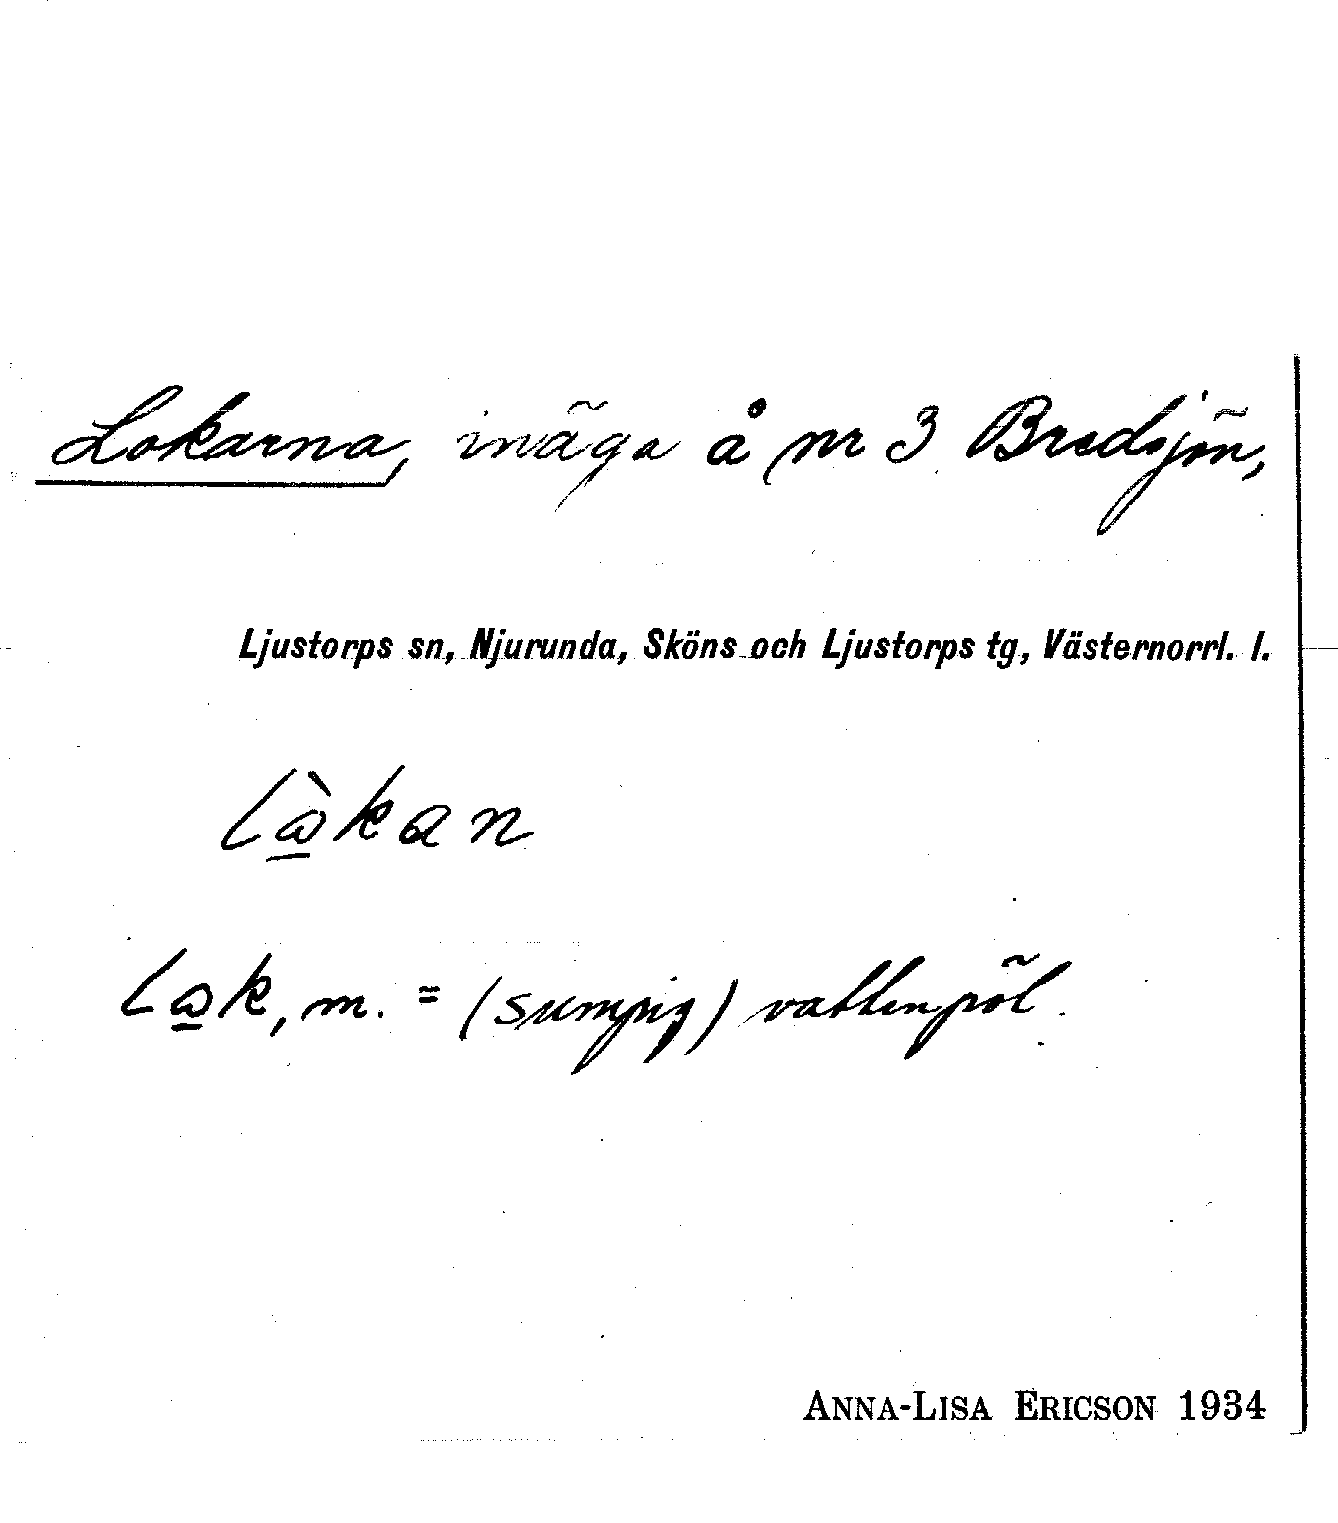 Lokarna, inäga å nr 3 Bredsjön,
Ljustorps sn, Njurunda, Sköns och Ljustorps tg, Västernorrl. l.
lὼ̲kan
lω̲k, m. = (sumpig) vattenpöl.
ANNA-LISA ERICSON 1934